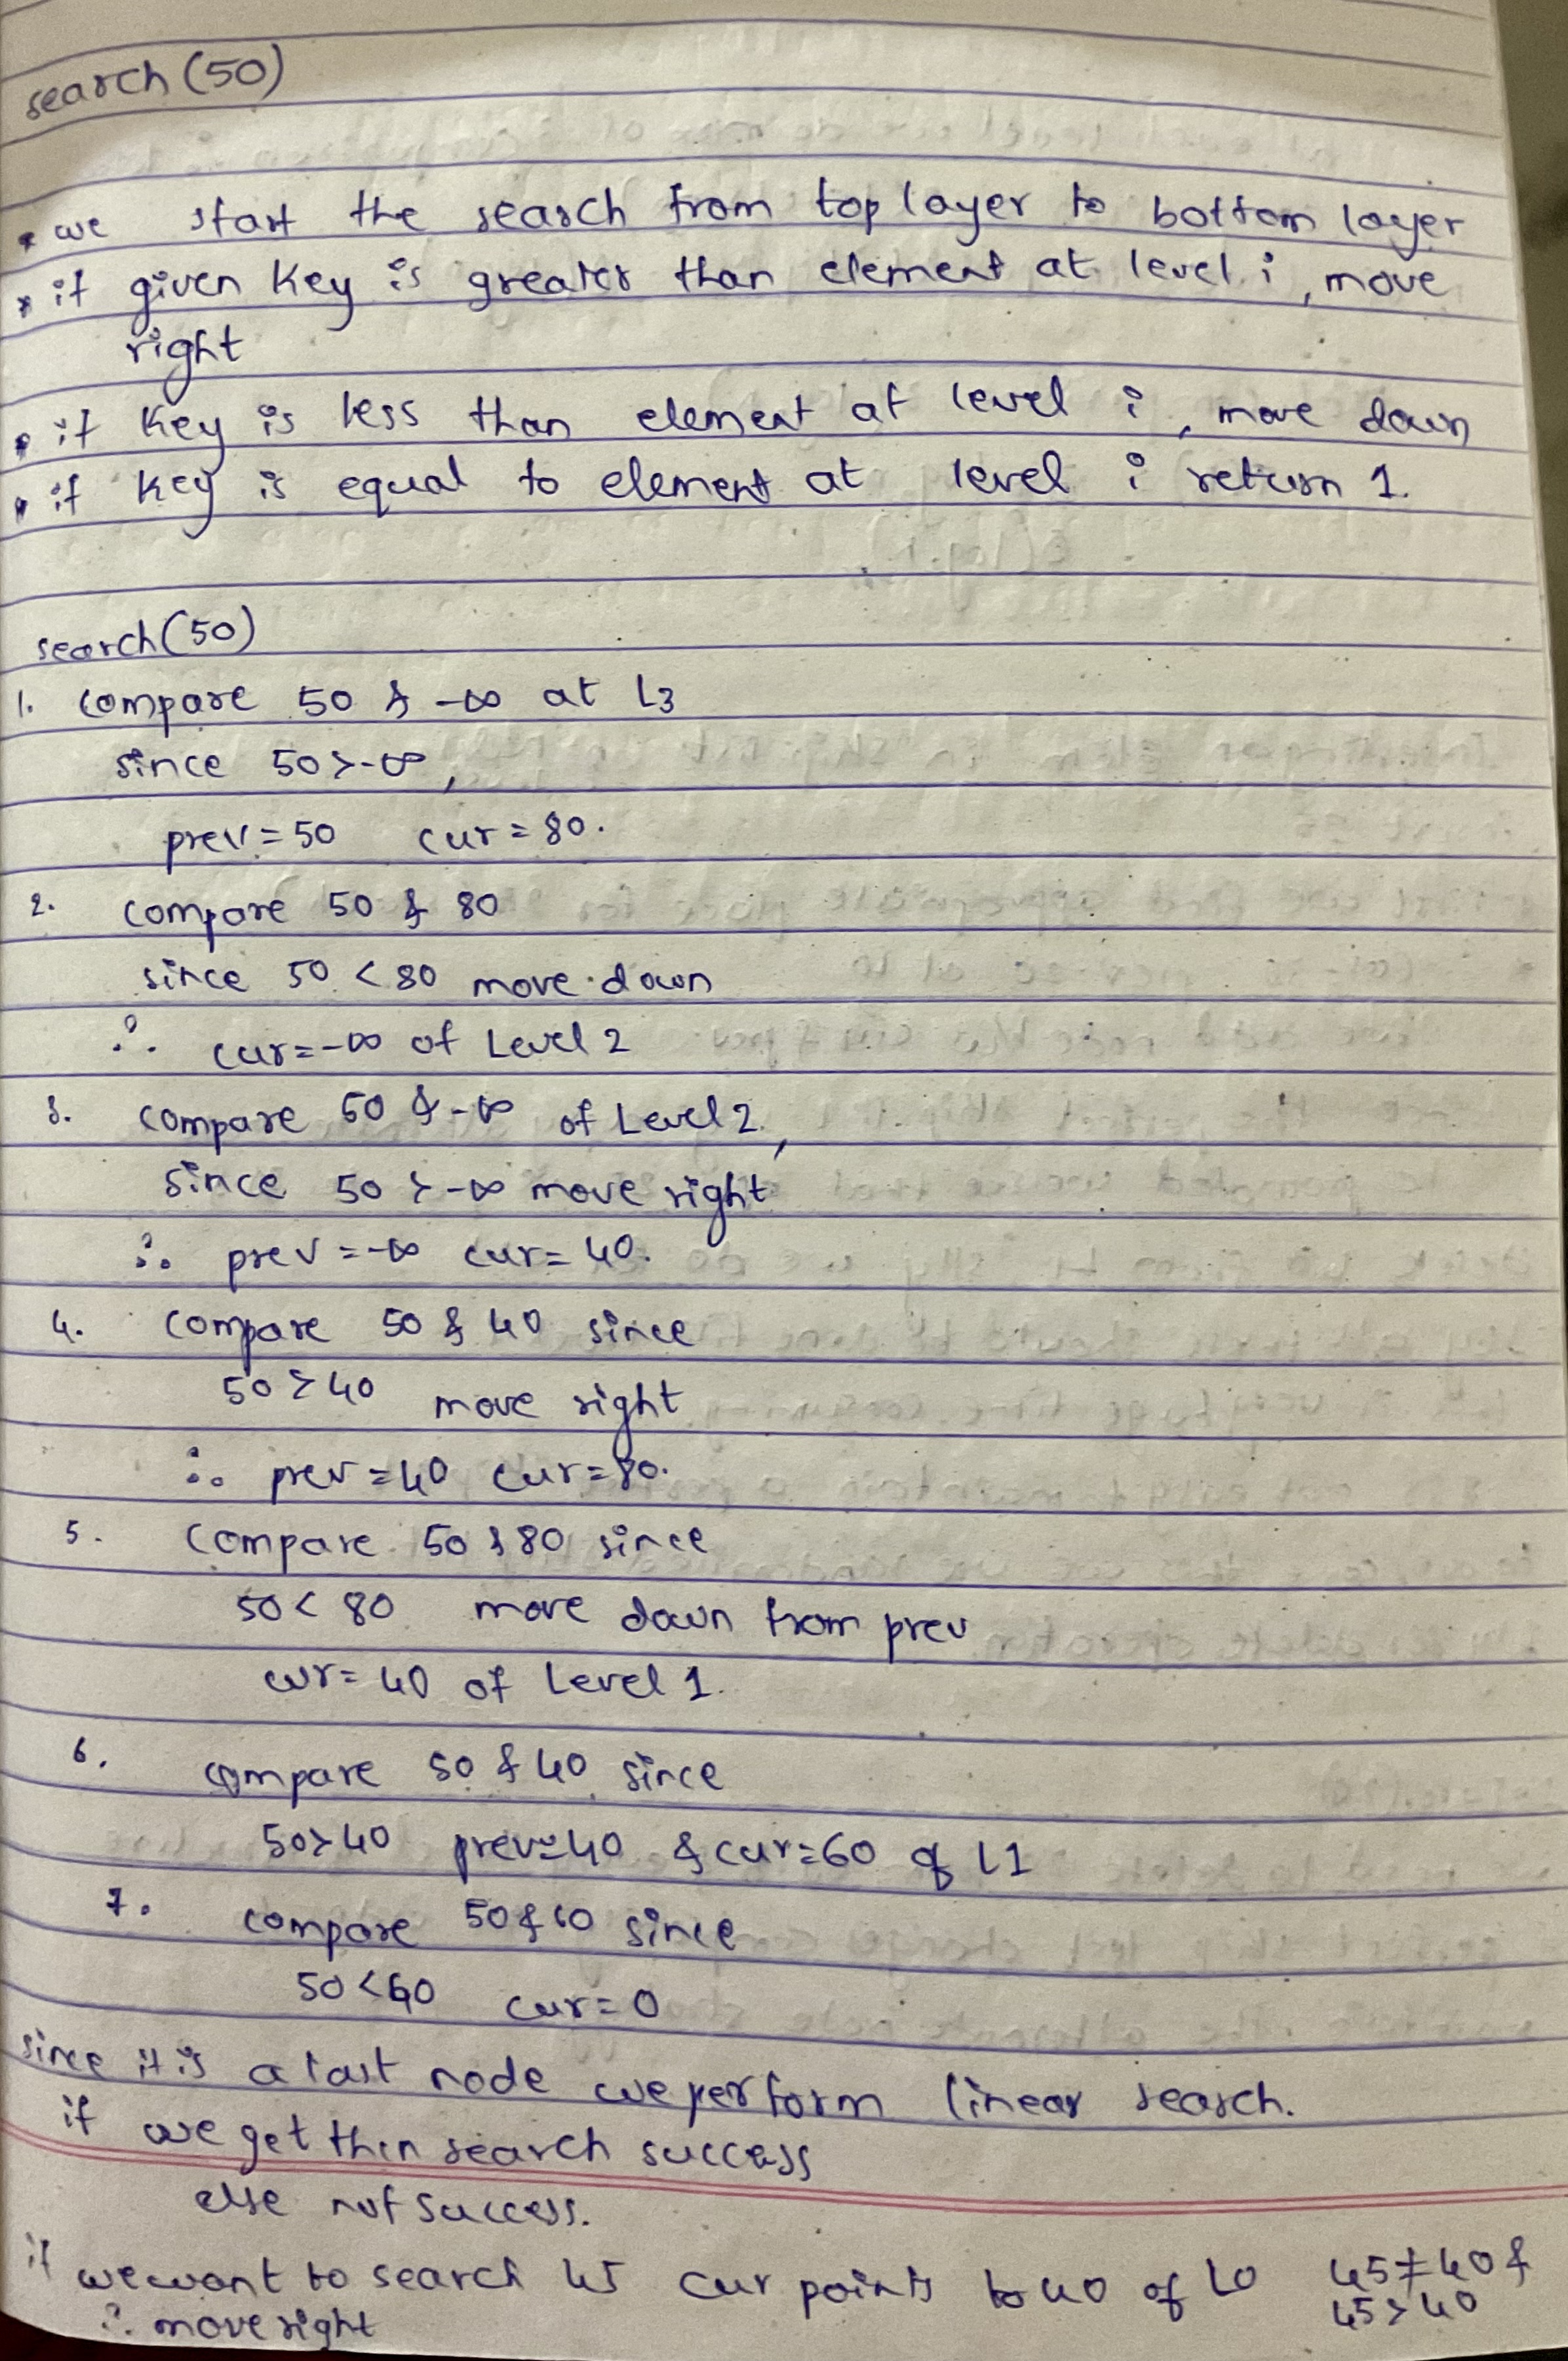 search (50)
• we start the search from top layer to bottom layer
• if given key is greater than element at level i, move
right
• if key is less than element at level i, move down
• if key is equal to element at level i return 1.
search (50)
1. compare 50 & -∞ at L3
since 50 > -∞,
prev = 50 cur = 80.
2. compare 50 & 80
since 50 < 80 move down
∴ cur = -∞ of Level 2
3. compare 50 & -∞ of Level 2,
since 50 > -∞ move right
∴ prev = -∞ cur = 40.
4. compare 50 & 40 since
50 > 40 move right
∴ prev = 40 cur = 80.
5. compare 50 & 80 since
50 < 80 move down from prev
cur = 40 of Level 1.
6. compare 50 & 40 since
50 > 40 prev = 40 & cur = 60 of L1
7. compare 50 & 60 since
50 < 60 cur = 0
since it is a last node we perform linear search.
if we get then search success
else not success.
if we want to search 45 cur points to 40 of L0 45 ≠ 40 &
45 > 40
∴ move right